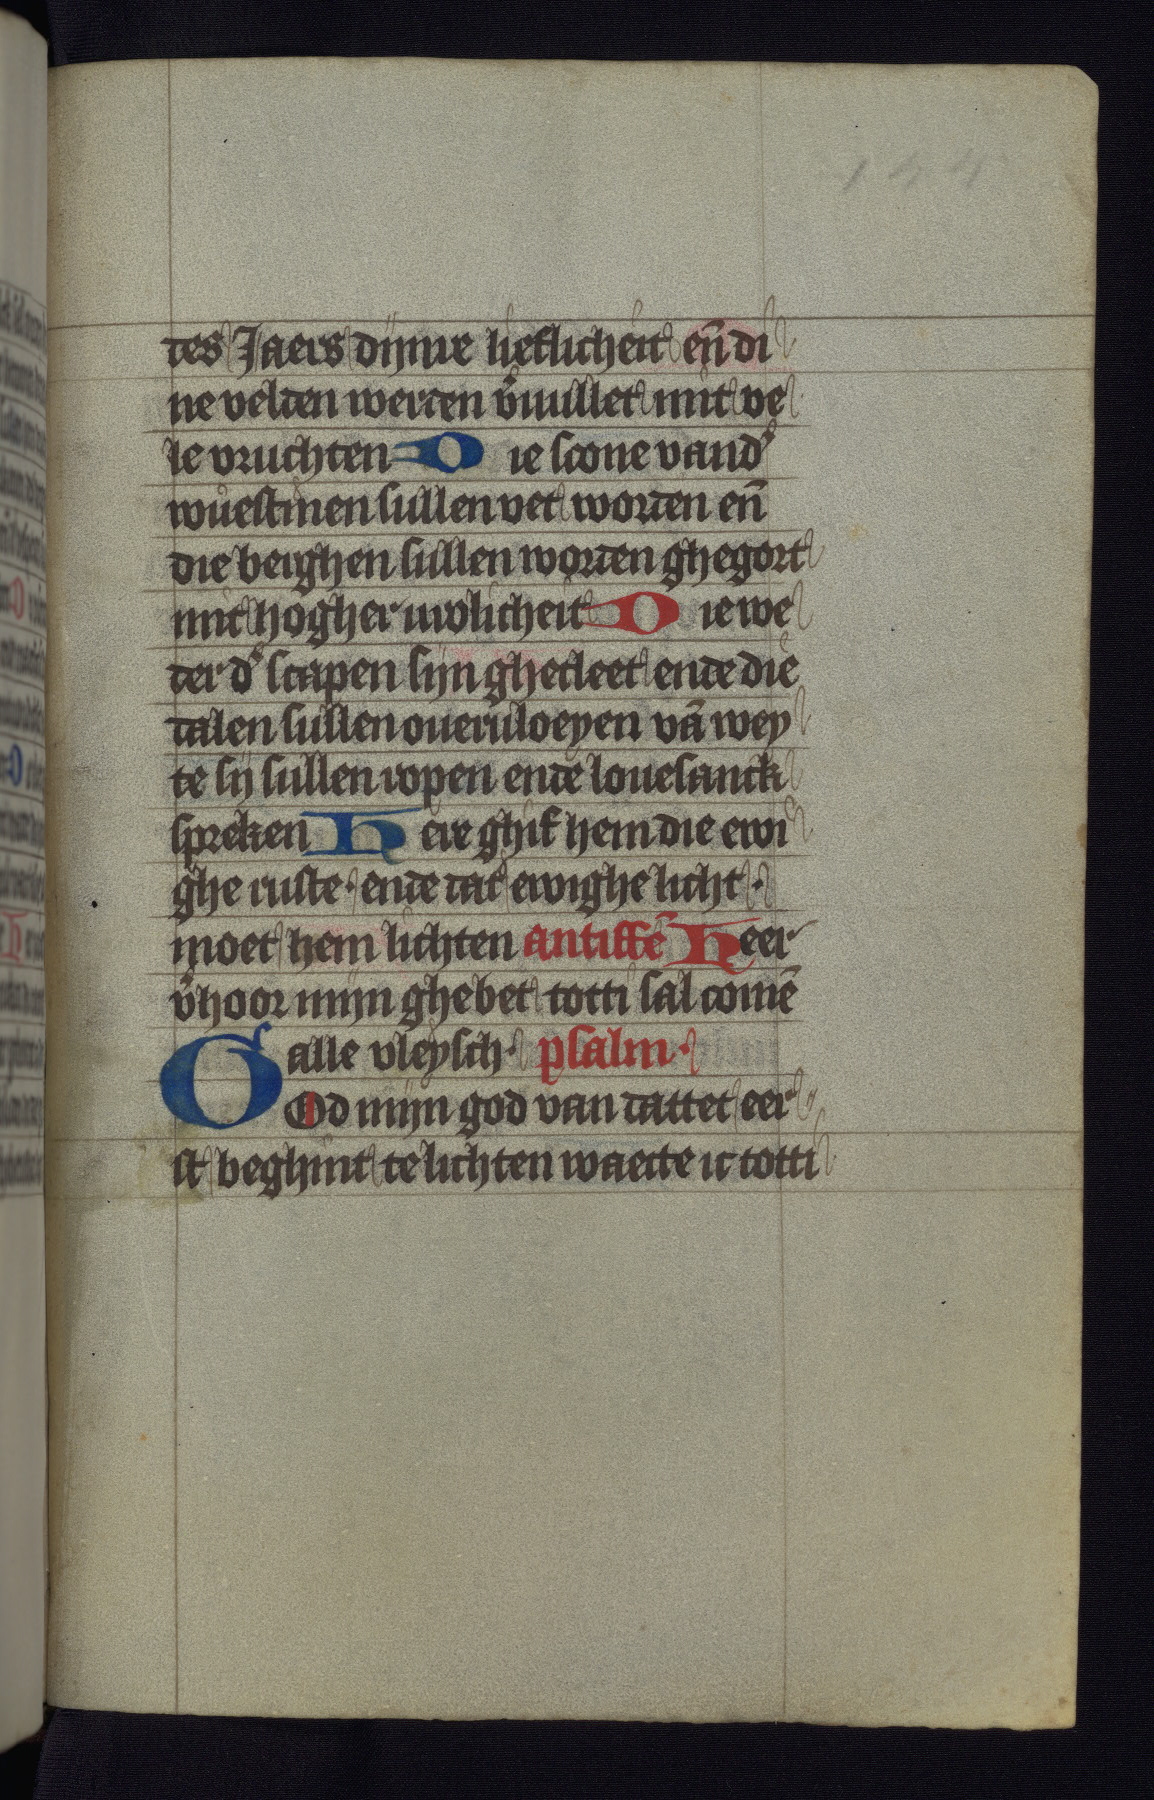 144
des Jaers dijnre lieflicheit eñ di
ne velden werden v̄uullet mit ve
le vruchten Die scone vand'
wuestinen sullen vet worden eñ
die berghen sullen worden ghegort
mit hogher urolicheit Die we
der d' scapen sijn ghecleet ende die
dalen sullen oueruloeyen vā wey
te sij sullen ropen ende louesanck
spreken Here ghif hem die ewi
ghe ruste· ende dat ewighe licht·
moet hem lichten antiffē Heer
v̄hoor mijn ghebet totti sal comē
alle vleysch· psalm·
GOd mijn god van dattet eer
st beghint te lichten waecte ic totti